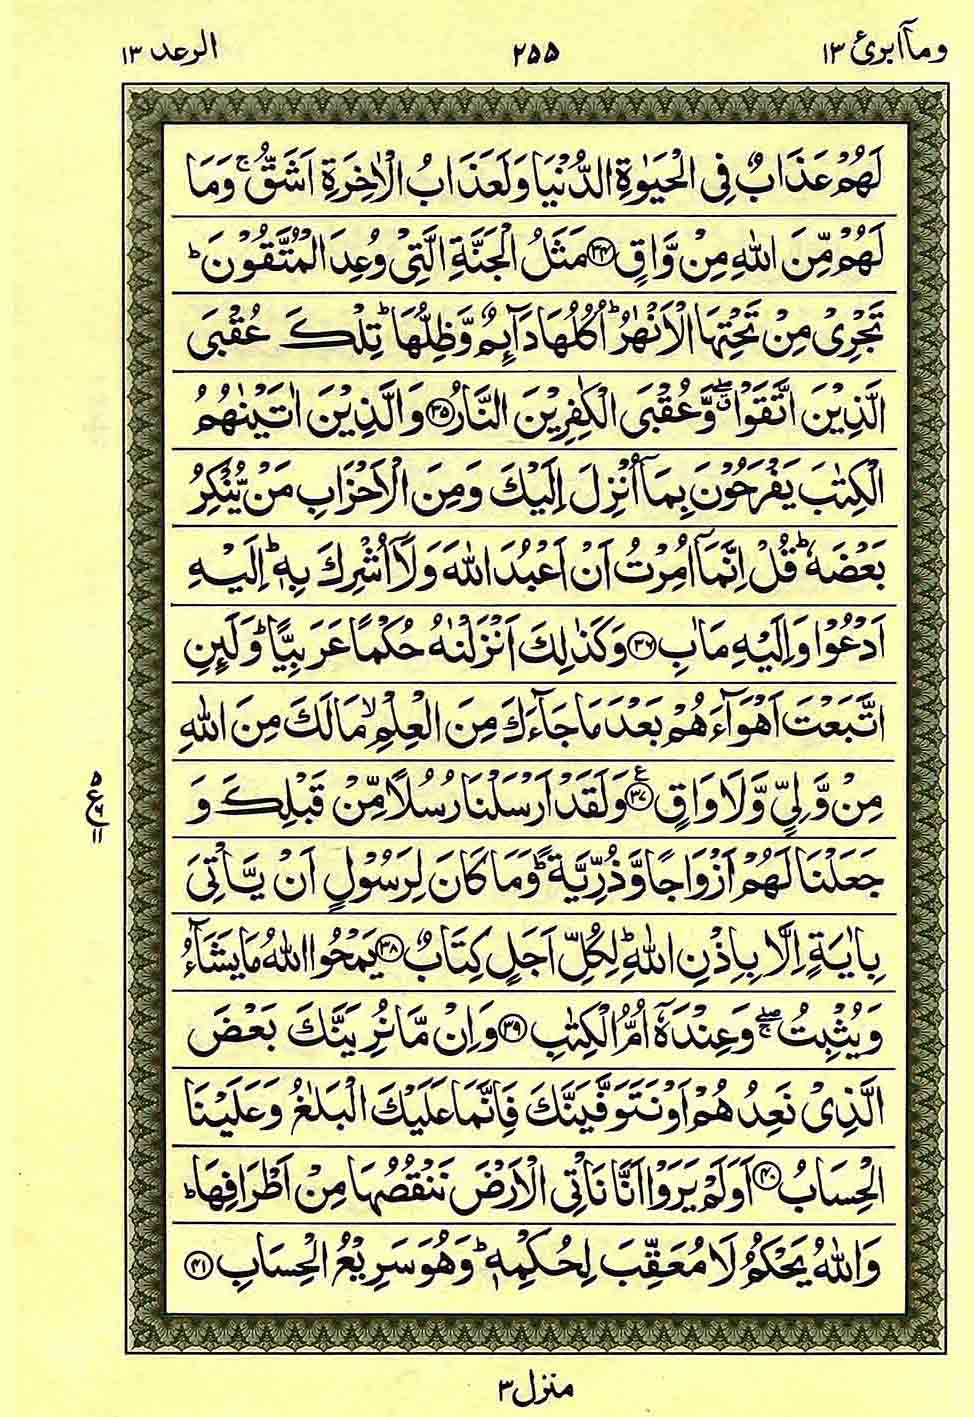 وماۤ ابرئ ۱۳
۲۵۵
الرعد ۱۳
لَهُمْ عَذَابٌ فِی الْحَیٰوةِ الدُّنْیَا وَلَعَذَابُ الْاٰخِرَةِ اَشَقُّ ۚ وَمَا
لَهُمْ مِّنَ اللّٰهِ مِنْ وَّاقٍ ﴿۳۴﴾ مَثَلُ الْجَنَّةِ الَّتِیْ وُعِدَ الْمُتَّقُوْنَ ؕ
تَجْرِیْ مِنْ تَحْتِهَا الْاَنْهٰرُ ؕ اُكُلُهَا دَآىِٕمٌ وَّظِلُّهَا ؕ تِلْكَ عُقْبَی
الَّذِیْنَ اتَّقَوْا ۖۗ وَّعُقْبَی الْكٰفِرِیْنَ النَّارُ ﴿۳۵﴾ وَالَّذِیْنَ اٰتَیْنٰهُمُ
الْكِتٰبَ یَفْرَحُوْنَ بِمَاۤ اُنْزِلَ اِلَیْكَ وَمِنَ الْاَحْزَابِ مَنْ یُّنْكِرُ
بَعْضَهٗ ؕ قُلْ اِنَّمَاۤ اُمِرْتُ اَنْ اَعْبُدَ اللّٰهَ وَلَاۤ اُشْرِكَ بِهٖ ؕ اِلَیْهِ
اَدْعُوْا وَاِلَیْهِ مَاٰبِ ﴿۳۶﴾ وَكَذٰلِكَ اَنْزَلْنٰهُ حُكْمًا عَرَبِیًّا ؕ وَلَىِٕنِ
اتَّبَعْتَ اَهْوَآءَهُمْ بَعْدَ مَا جَآءَكَ مِنَ الْعِلْمِ ۙ مَا لَكَ مِنَ اللّٰهِ
مِنْ وَّلِیٍّ وَّلَا وَاقٍ ﴿۳۷﴾ ع وَلَقَدْ اَرْسَلْنَا رُسُلًا مِّنْ قَبْلِكَ وَ
جَعَلْنَا لَهُمْ اَزْوَاجًا وَّذُرِّیَّةً ؕ وَمَا كَانَ لِرَسُوْلٍ اَنْ یَّاْتِیَ
بِاٰیَةٍ اِلَّا بِاِذْنِ اللّٰهِ ؕ لِكُلِّ اَجَلٍ كِتَابٌ ﴿۳۸﴾ یَمْحُوا اللّٰهُ مَا یَشَآءُ
وَیُثْبِتُ ۖۚ وَعِنْدَهٗۤ اُمُّ الْكِتٰبِ ﴿۳۹﴾ وَاِنْ مَّا نُرِیَنَّكَ بَعْضَ
الَّذِیْ نَعِدُهُمْ اَوْ نَتَوَفَّیَنَّكَ فَاِنَّمَا عَلَیْكَ الْبَلٰغُ وَعَلَیْنَا
الْحِسَابُ ﴿۴۰﴾ اَوَلَمْ یَرَوْا اَنَّا نَاْتِی الْاَرْضَ نَنْقُصُهَا مِنْ اَطْرَافِهَا ؕ
وَاللّٰهُ یَحْكُمُ لَا مُعَقِّبَ لِحُكْمِهٖ ؕ وَهُوَ سَرِیْعُ الْحِسَابِ ﴿۴۱﴾
۵
ع
۱۱
منزل ۳